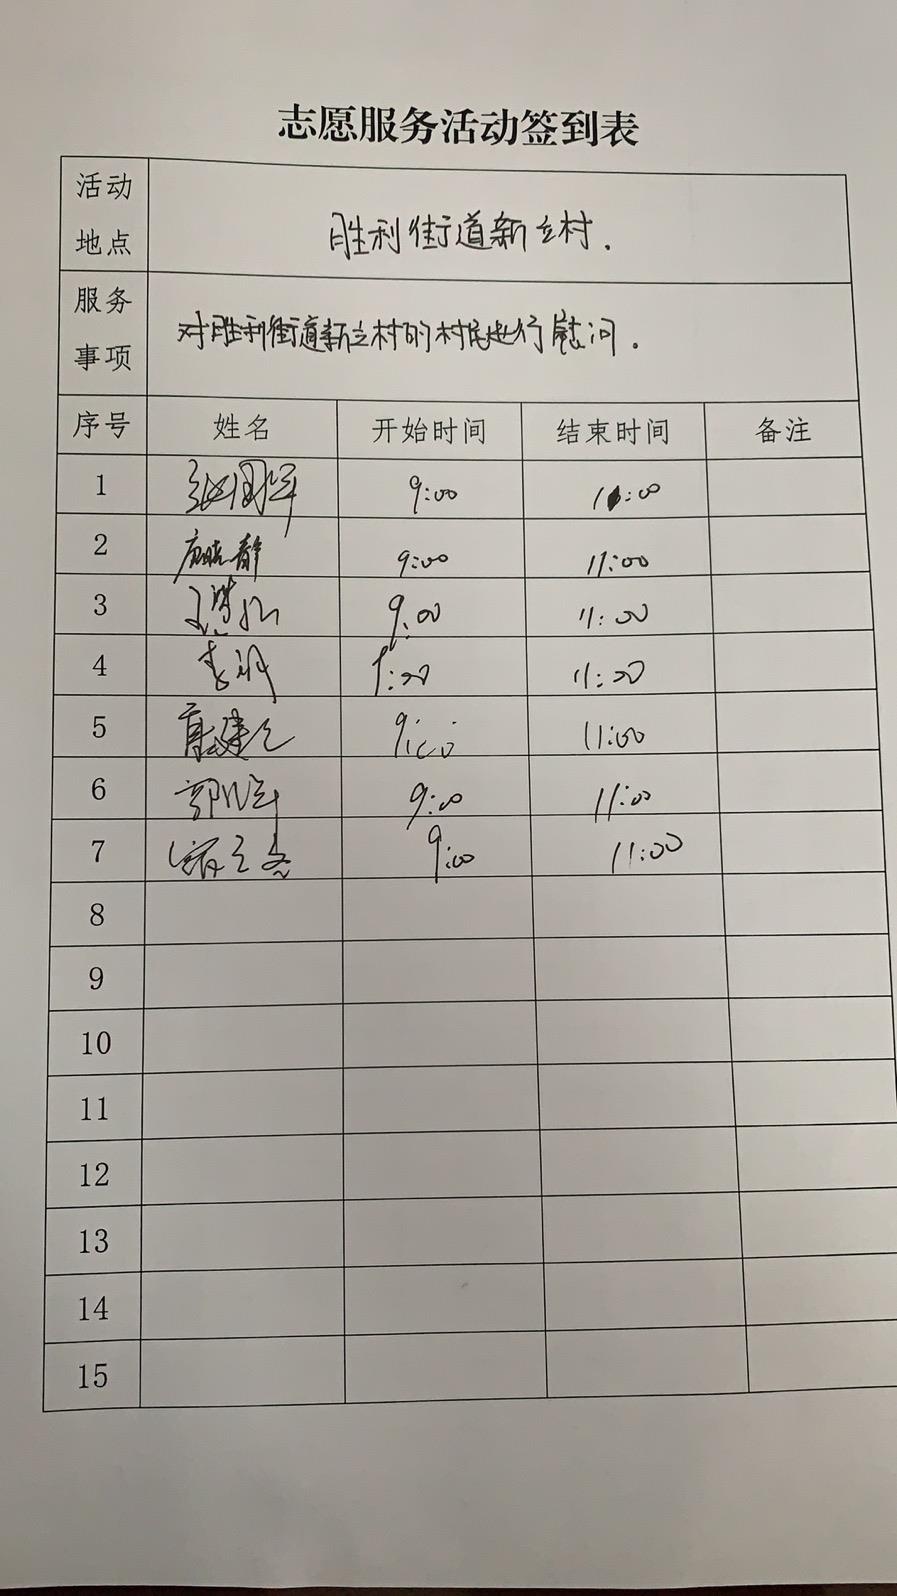 志愿服务活动签到表
活动地点 胜利街道新立村.
服务事项 对胜利街道新立村的村民进行慰问.
序号 姓名 开始时间 结束时间 备注
1 9:00 11:00
2 9:00 11:00
3 9:00 11:00
4 11:00
5 9:00 11:00
6 9:00 11:00
7 9:00 11:00
8
9
10
11
12
13
14
15